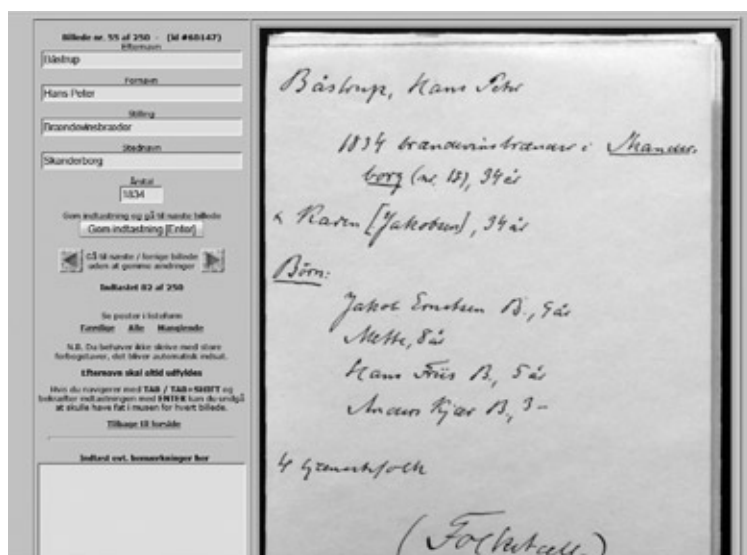 Billede nr. 55 af 250 - (Id #60147)
Efternavn
Båstrup
Fornavn
Hans Peter
Stilling
Brændevinsbrænder
Stednavn
Skanderborg
Årstal
1834
Gem indtastning og gå til næste billede
Gem indtastning [Enter]
Gå til næste / forrige billede
uden at gemme ændringer
Indtastet 82 af 250
Se poster i listeform
Færdige Alle Manglende
N.B. Du behøver ikke skrive med store
forbogstaver, det bliver automatisk indsat.
Efternavn skal altid udfyldes
Hvis du navigerer med TAB / TAB+SHIFT og
bekræfter indtastningen med ENTER kan du undgå
at skulle have fat i musen for hvert billede.
Tilbage til forside
Indtast evt. bemærkninger her
Båstrup, Hans Peter
1834 brændevinsbrænder i Skander-
borg (nr. 13), 34 år
& Karen [Jakobsen], 34 år
Børn:
Jakob Ernstsen B., 9 år
Mette, 8 år
Hans Friis B., 5 år
Anders Kjær B., 3 -
4
(Folketæll.)